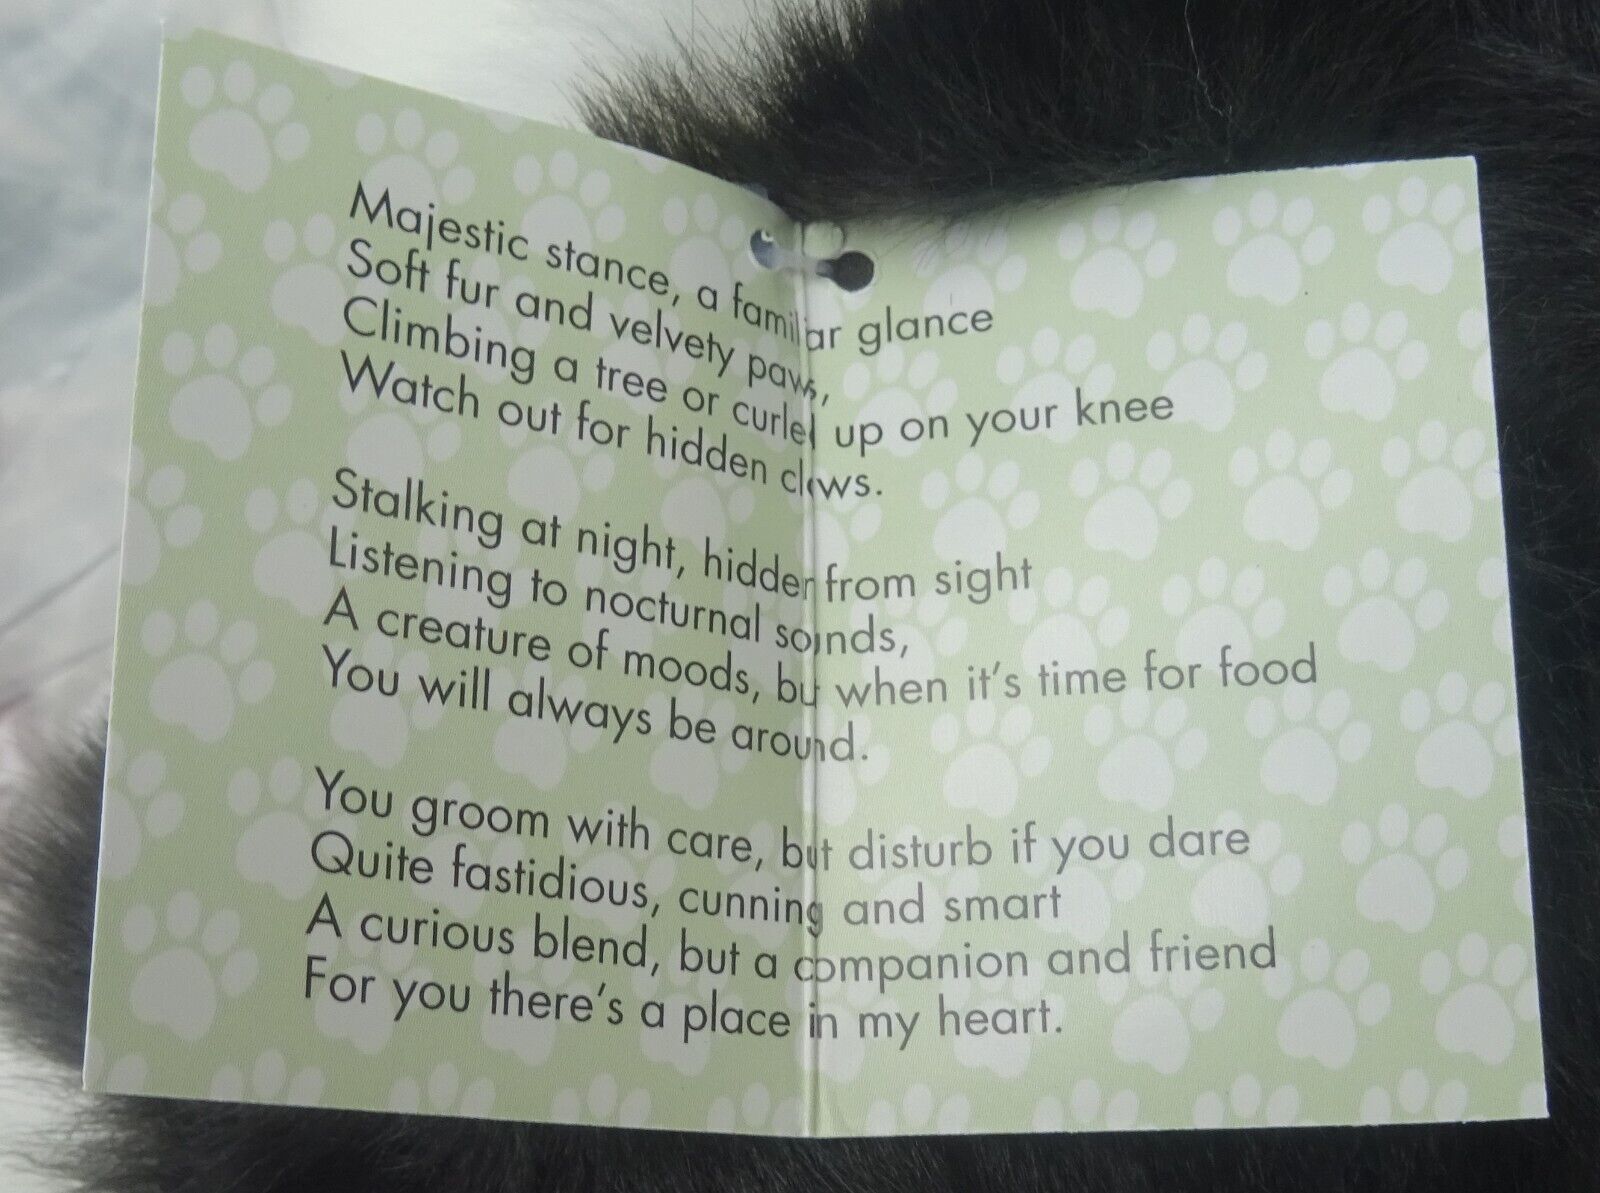 Majestic stance, a familiar glance
Soft fur and velvety paws,
Climbing a tree or curled up on your knee
Watch out for hidden claws.
Stalking at night, hidden from sight
Listening to nocturnal sounds,
A creature of moods, but when it's time for food
You will always be around.
You groom with care, but disturb if you dare
Quite fastidious, cunning and smart
A curious blend, but a companion and friend
For you there's a place in my heart.